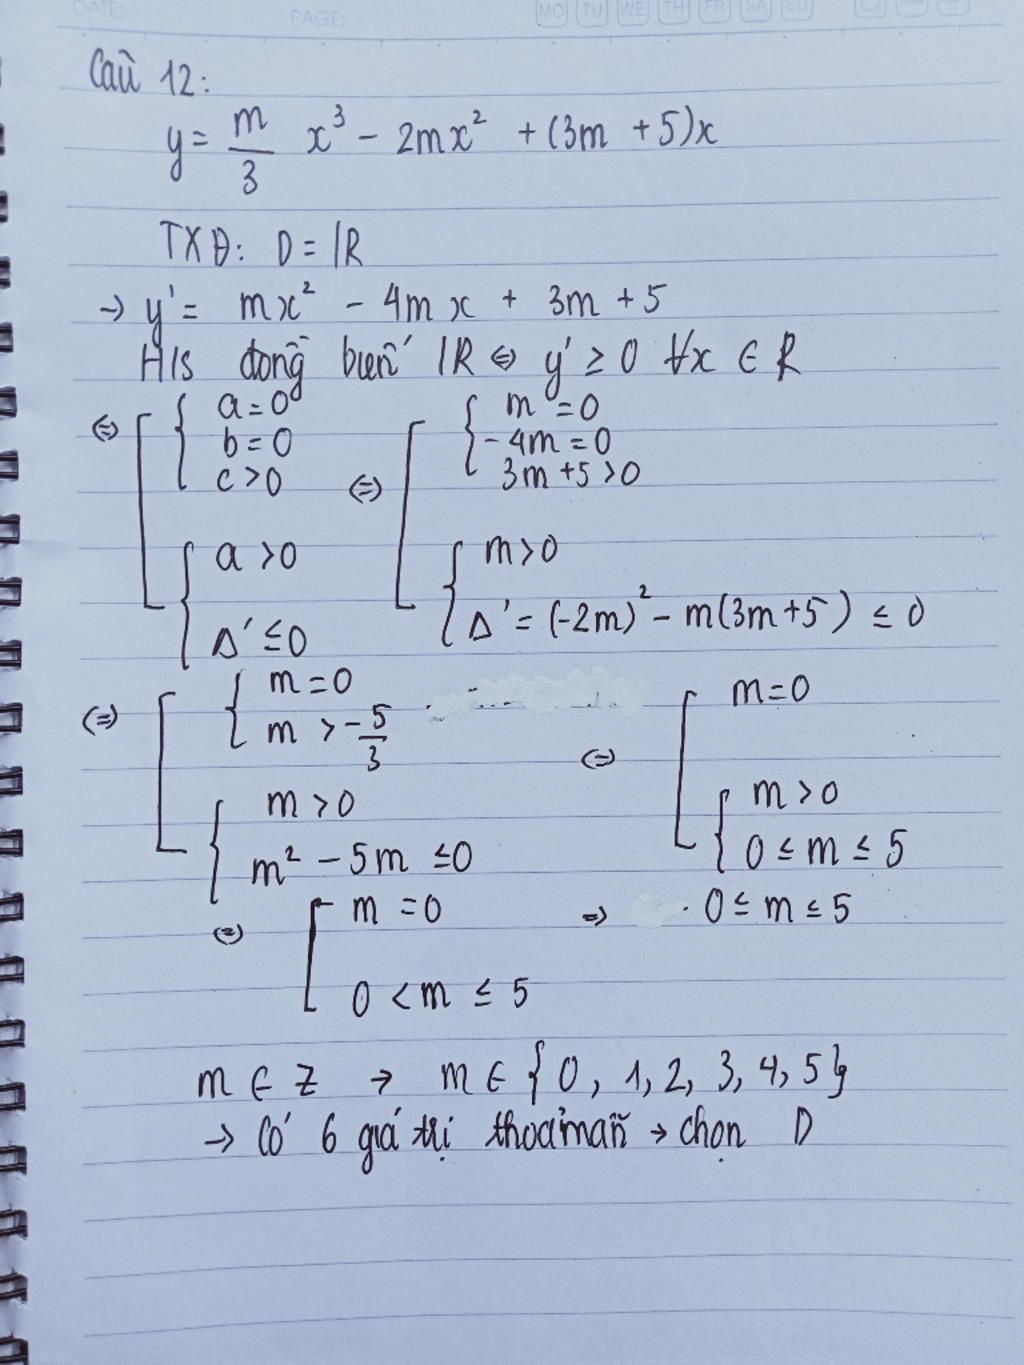 DATE:
PAGE:
MO TU WE TH FR SA SU
Câu 12:
y = m/3 x³ - 2mx² + (3m + 5)x
TXĐ: D = |R
→ y' = mx² - 4mx + 3m + 5
H/s đồng biến |R ⇔ y' ≥ 0 ∀x ∈ R
⇔ [ { a = 0 ; b = 0 ; c > 0 ⇔ [ { m = 0 ; - 4m = 0 ; 3m + 5 > 0
{ a > 0 ; Δ' ≤ 0 { m > 0 ; Δ' = (-2m)² - m(3m+5) ≤ 0
⇔ [ { m = 0 ; m > -5/3 ⇔ [ m = 0
{ m > 0 ; m² - 5m ≤ 0 { m > 0 ; 0 ≤ m ≤ 5
⇔ [ m = 0 ⇒ 0 ≤ m ≤ 5
0 < m ≤ 5
m ∈ Z → m ∈ {0, 1, 2, 3, 4, 5}
→ Có 6 giá trị thỏa mãn → chọn D